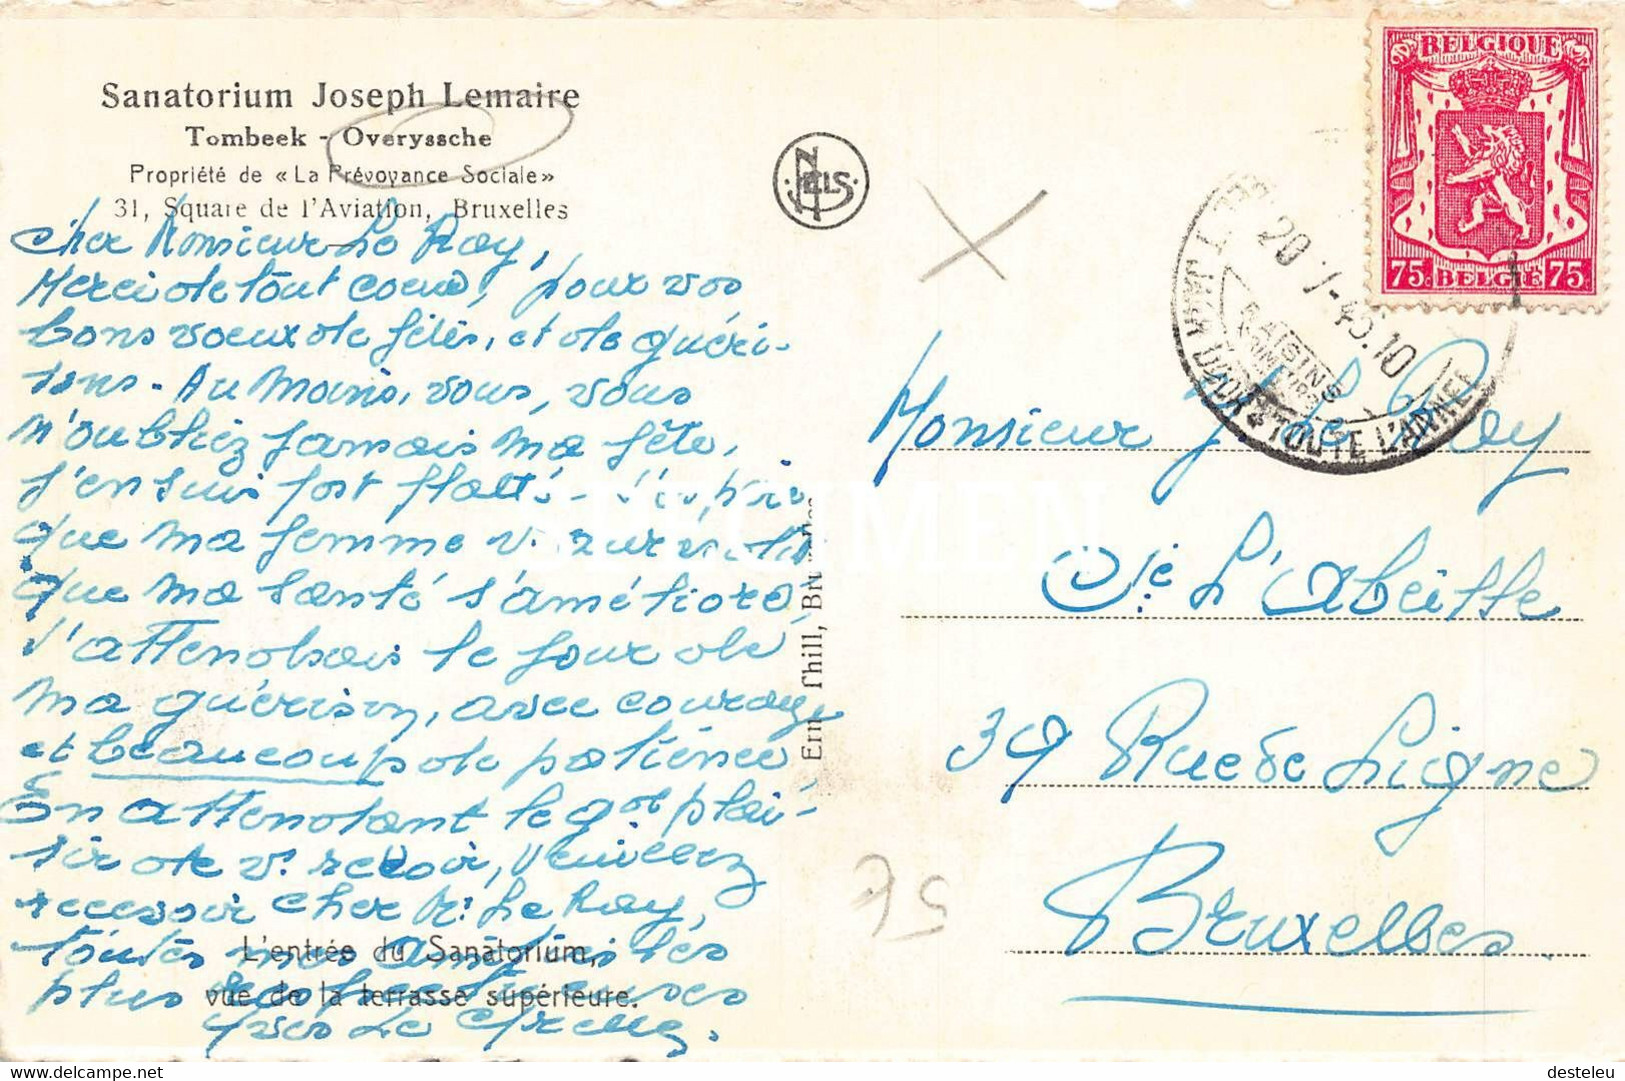 Sanatorium Joseph Lemaire
Tombeek - Overyssche
Propriété de « La Prévoyance Sociale »
31, Square de l'Aviation, Bruxelles
Cher Monsieur Le Roy,
Merci de tout coeur, pour vos
bons voeux de fêtes, et de guéri-
sons. Au moins, vous, vous
n'oubliez jamais ma fête,
j'en suis fort flatté -
que ma femme
que ma santé s'améliore,
J'attendrais le jour de
ma guérison, avec courage
et beaucoup de patience
En attendant le gd plai-
sir de v. revoir, veuillez
recevoir cher Mr Le Roy,
toutes mes amitiés les
plus
Yves Le
L'entrée du Sanatorium,
vue de la terrasse supérieure.
NELS
Ern. Thill,
BELGIQUE
75c BELGIË 75c
20
10
RAISINS
TOUTE L'ANNEE
Monsieur J. Le Roy
Cie L'Abeille
39 Rue de Ligne
Bruxelles.
75
SPECIMEN
delcampe.net
desteleu